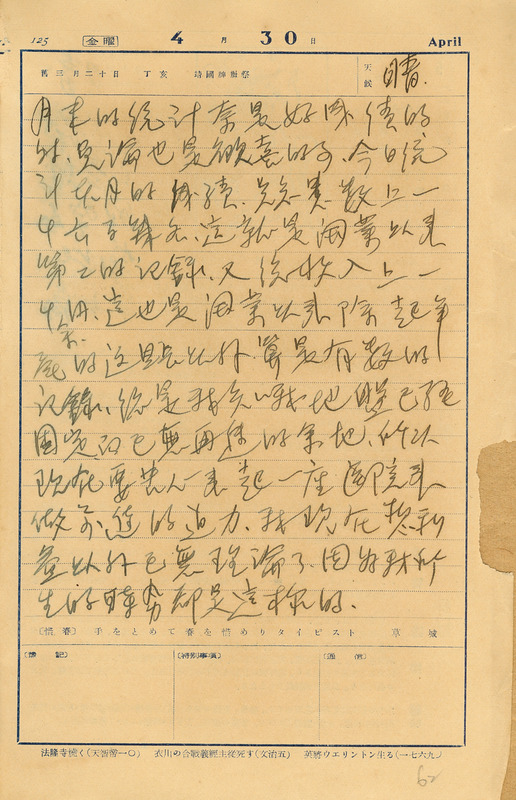 125 金曜 4月30日 April
舊三月二十日 丁亥 靖國神社祭 天候 晴.
月末的統計奈是好成績的
時、無論也是歡喜的了、今日統
計本月的成績、總患數上一
千六百餘名、這就是開業以來
第二的記錄、又總收入上一
千円、這也是開業以來除起年
底的這點以外、算是有數的
記錄、總是我的地盤已經
固定而已無再進的余地、所以
現在要共人來起一座醫院來
做前進的迫力、我現在
益以外已無理論了、因為
生的時勢却是這樣的.
〔惜春〕 手をとめて春を惜めりタイピスト 草城
〔豫記〕 〔特別事項〕 〔通信〕
法隆寺燒く(天智帝一〇) 衣川の合戰義經主從死す(文治五) 英將ウエリントン生る(一七六九)
62